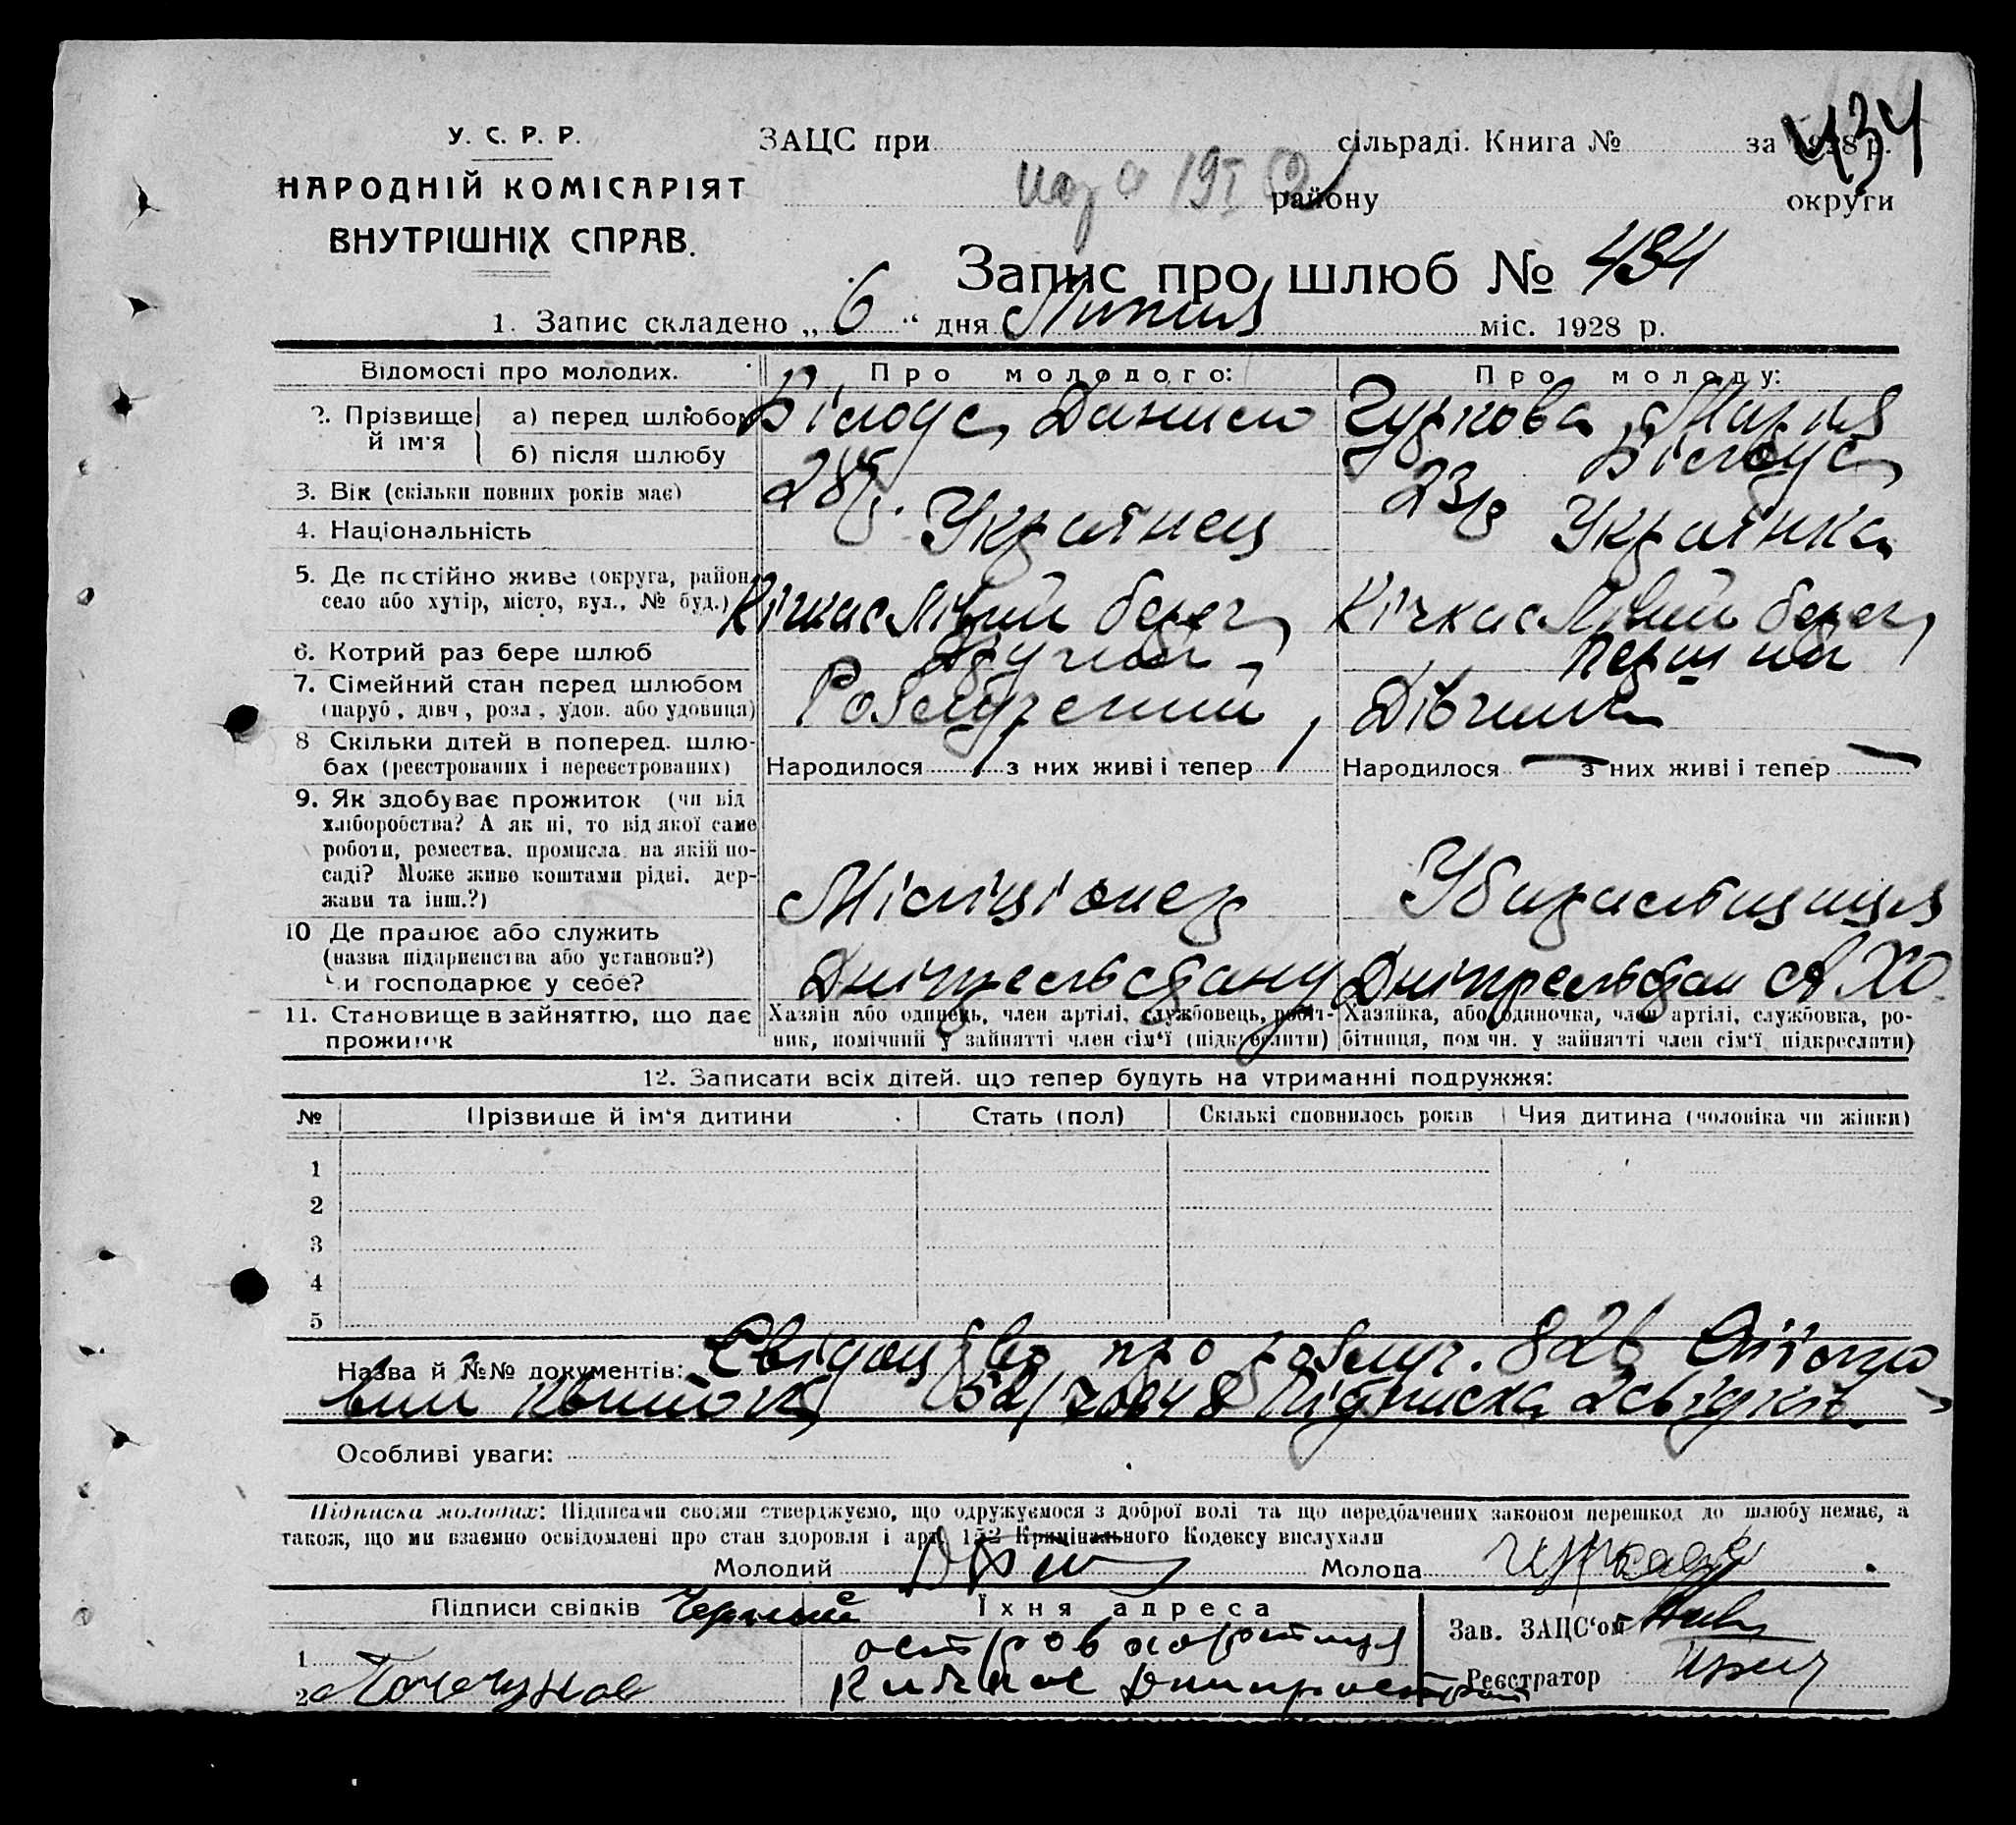 434
У. С. Р. Р.
НАРОДНІЙ КОМІСАРІЯТ
ВНУТРІШНІХ СПРАВ.
ЗАЦС при сільраді. Книга № за 1928 р.
району округи
Запис про шлюб № 434
1. Запис складено „ 6 “ дня Липня міс. 1928 р.
Відомості про молодих. Про молодого: Про молоду:
2. Прізвище й ім'я а) перед шлюбом Білоус Данило Гуркова Марія
б) після шлюбу Білоус
3. Вік (скільки повних років має) 28 р. 23 р
4. Національність Украінец Украінка
5. Де постійно живе (округа, район,
село або хутір, місто, вул., № буд.) Кічкас Лівий берег, Кічкас Лівий берег,
6. Котрий раз бере шлюб Другий Перший
7. Сімейний стан перед шлюбом
(паруб., дівч., розл., удов. або удовиця) Розлучений Дівчина
8 Скільки дітей в поперед. шлю-
бах (реєстрованих і нереєстрованих) Народилося з них живі і тепер Народилося — з них живі і тепер —
9. Як здобуває прожиток (чи від
хліборобства? А як ні, то від якої саме
роботи, ремества, промисла, на якій по-
саді? Може живе коштами рідні, дер-
жави та інш.?) Міліціонер Убиральщиця
10 Де працює або служить
(назва підприємства або установи?)
Чи господарює у себе? Дніпрельстану Дніпрельстан АХО
11. Становище в зайняттю, що дає
прожиток
Хазяїн або одинець, член артілі, службовець, робіт-
ник, помічний у зайнятті член сім'ї (підкреслити)
Хазяйка, або одиночка, член артілі, службовка, ро-
бітниця, пом чн. у зайнятті член сім'ї підкреслити)
12. Записати всіх дітей, що тепер будуть на утриманні подружжя:
№ Прізвище й ім'я дитини Стать (пол) Скількі сповнилось років Чия дитина (чоловіка чи жінки)
1
2
3
4
5
Назва й №№ документів: Свідоцтво про розлуч. 826
квиток Підписка 2 свідків
Особливі уваги:
Підписка молодих: Підписами своїми стверджуємо, що одружуємося з доброї волі та що передбачених законом перешкод до шлюбу немає, а
також, що ми взаємно освідомлені про стан здоровля і арт. 152 Кримінального Кодексу вислухали
Молодий Молода
Підписи свідків Їхня адреса
1 остров хортиця
2 Кичкас Днипрострой
Зав. ЗАЦС'ом
Реєстратор